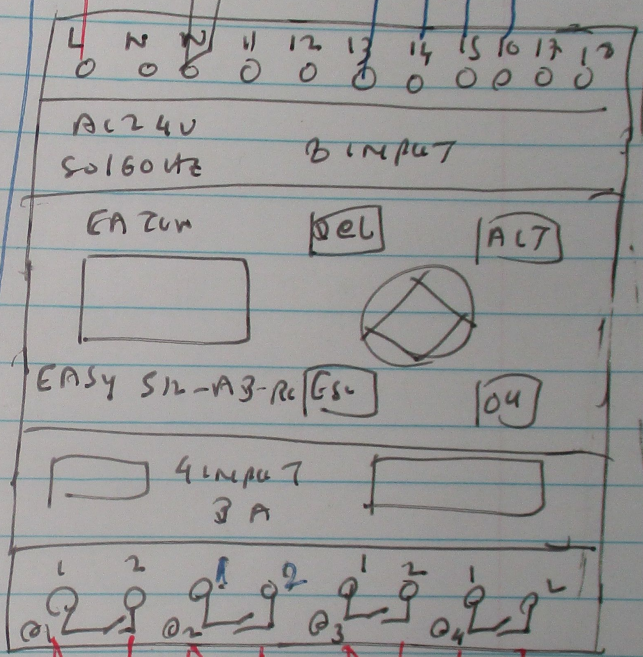 L N N I1 I2 I3 I4 I5 I6 I7 I8
AC 24V
50/60HZ
8 INPUT
EATON
DEL
ALT
EASY 512-AB-RC
ESC
OK
4 INPUT
8 A
1 2 1 2 1 2 1 2
Q1 Q2 Q3 Q4